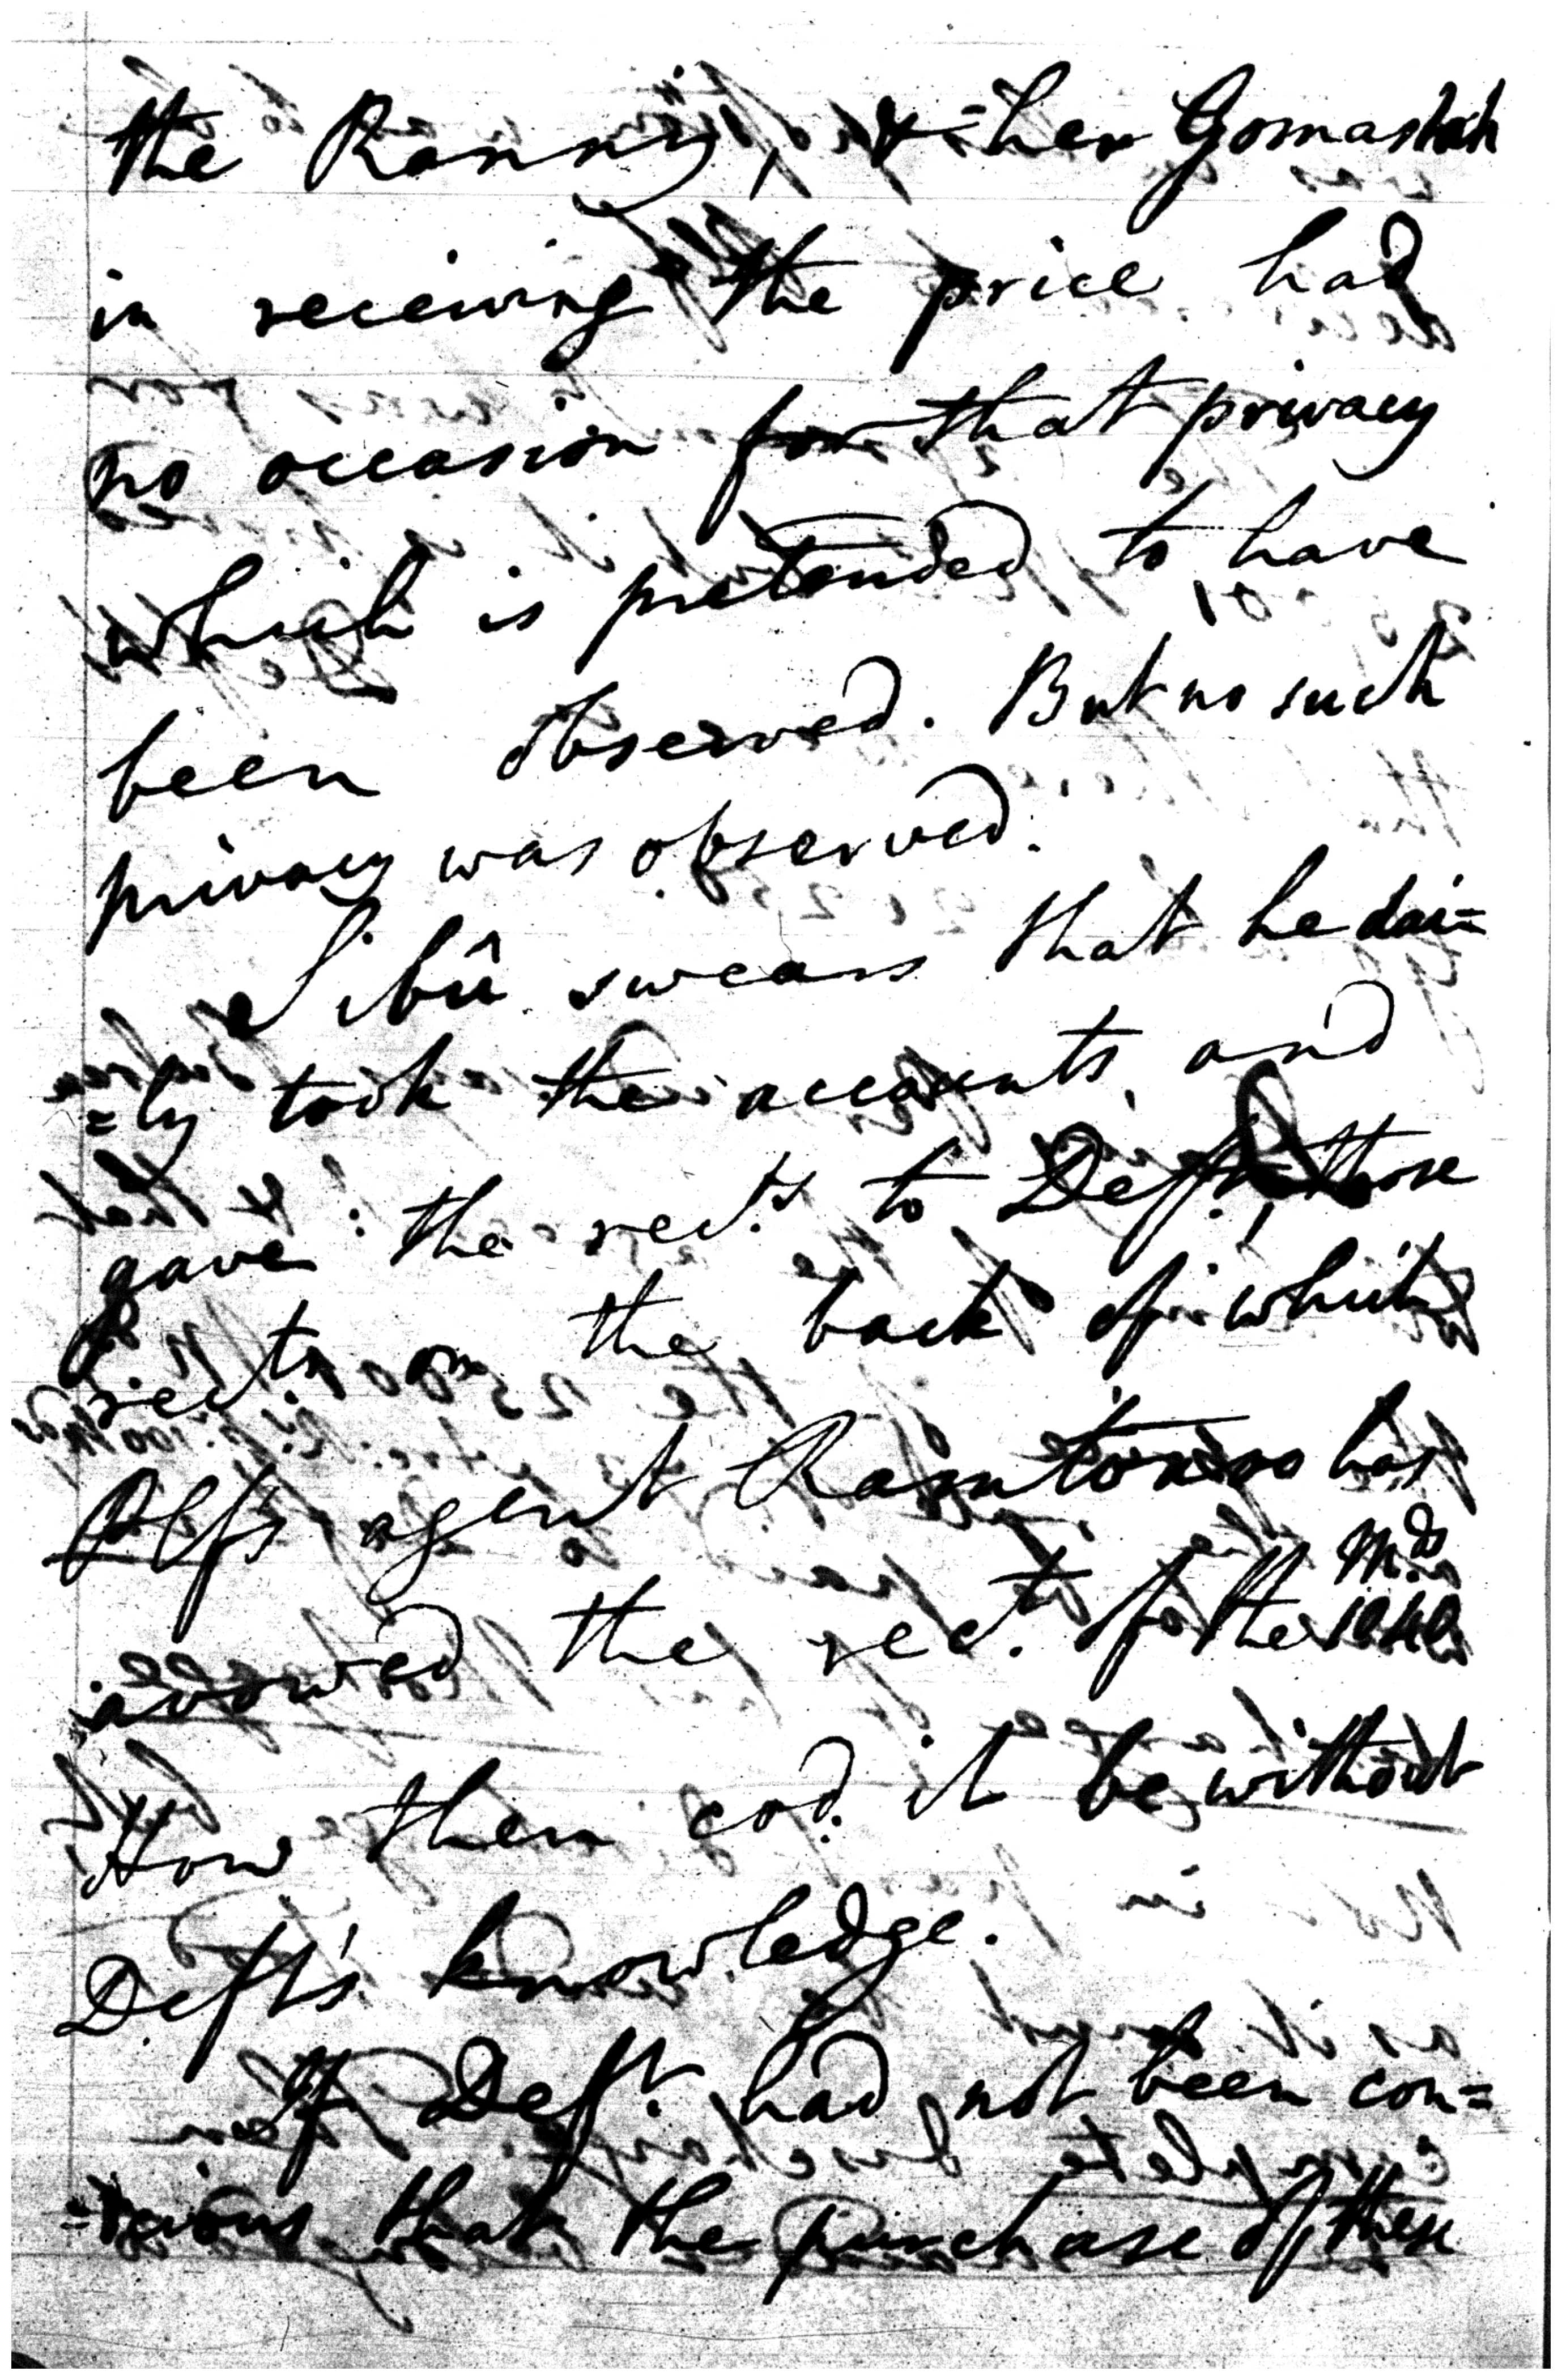 the Ranny, & her Gomastah
in receiving the price had
no occasion for that privacy
which is pretended to have
been observed. But no such
privacy was observed.
Sibû swears that he dai=
=ly took the accounts, and
gave the rects. to Deft, those
rects. on the back of which
Plfs agent has
avowed the rect. of the Mds
How then cod. it be without
Deft's knowledge.
If Deft. had not been con=
=scious that the purchase of these